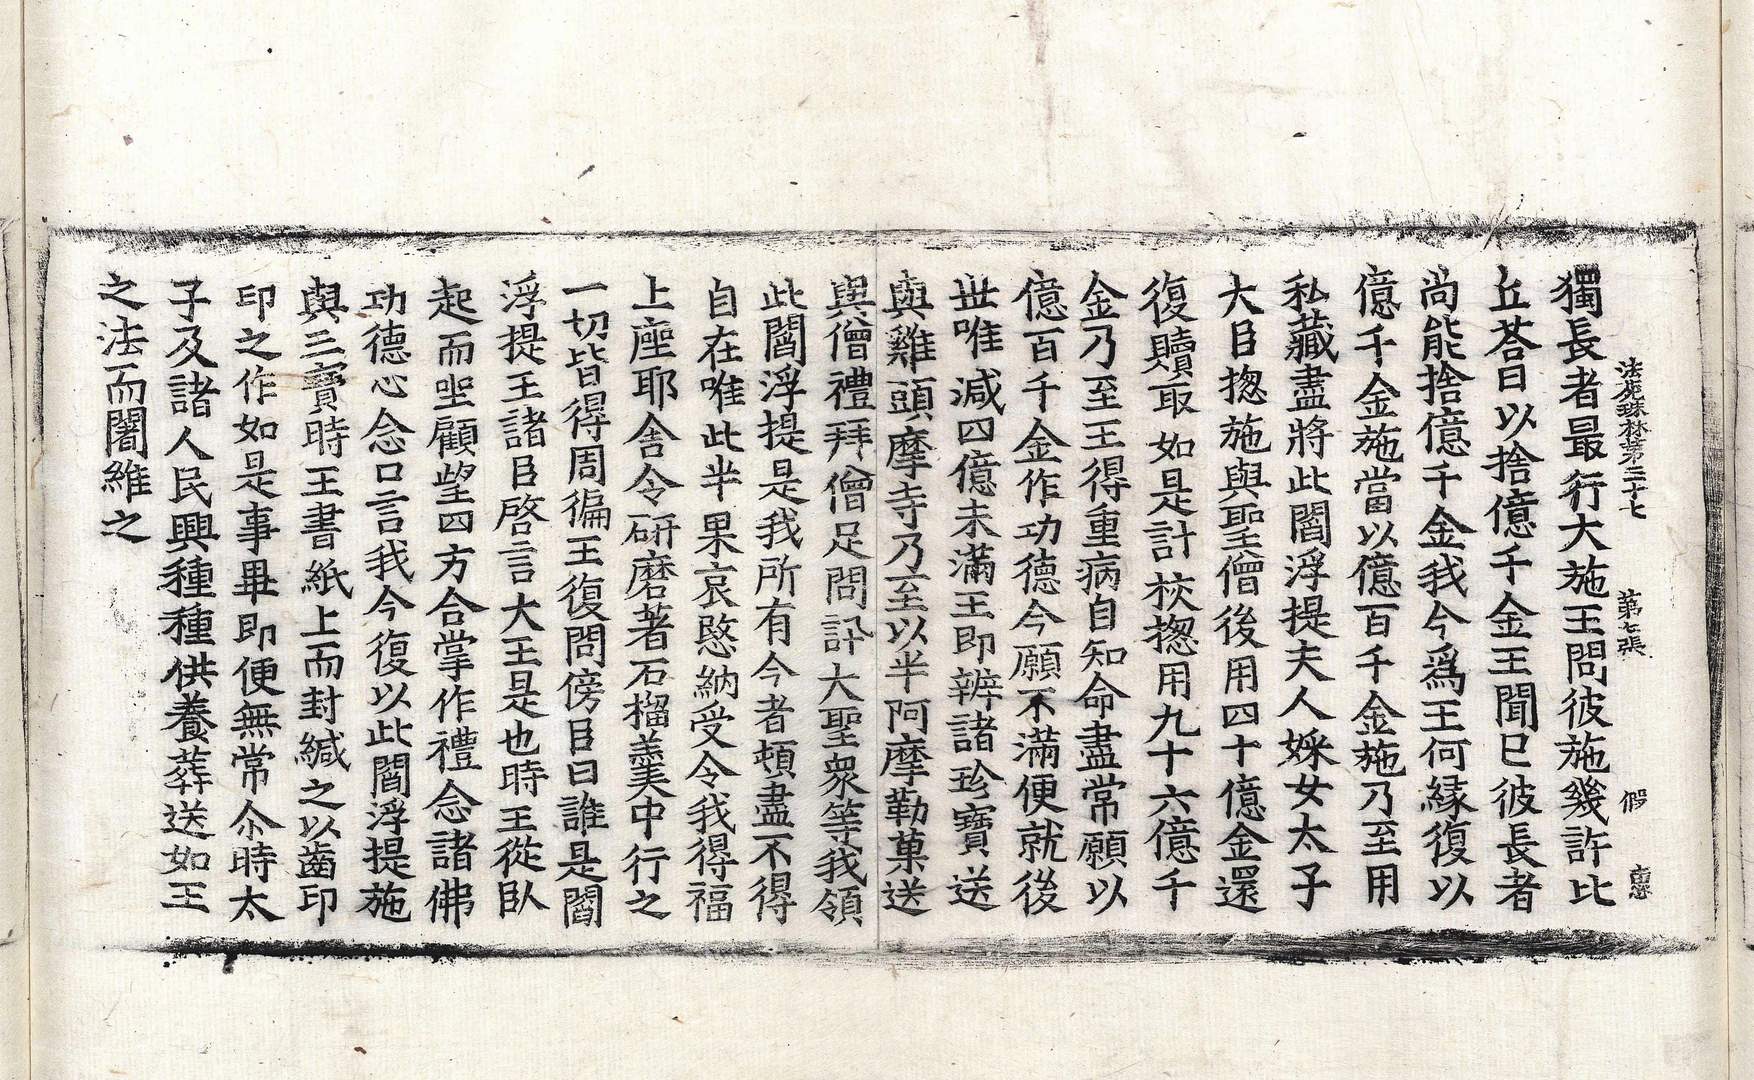 法苑珠林第三十七　第七張　假　
獨長者最行大施王問彼施幾許比
丘荅曰以捨億千金王聞已彼長者
尚能捨億千金我今爲王何緣復以
億千金施當以億百千金施乃至用
私藏盡將此閻浮提夫人婇女太子
大臣揔施與聖僧後用四十億金還
復贖取如是計挍揔用九十六億千
金乃至王得重病自知命盡常願以
億百千金作功德今願不滿便就後
世唯減四億未滿王即辦諸珍寶送
與雞頭摩寺乃至以半阿摩勒菓送
與僧禮拜僧足問訊大聖衆等我領
此閻浮提是我所有今者頓盡不得
自在唯此半果哀愍納受令我得福
上座耶舍令硏磨著石榴羹中行之
一切皆得周徧王復問傍臣曰誰是閻
浮提王諸臣啓言大王是也時王從臥
起而坐顧望四方合掌作禮念諸佛
功德心念口言我今復以此閻浮提施
與三寶時王書紙上而封緘之以齒印
印之作如是事畢即便無常尒時太
子及諸人民興種種供養葬送如王
之法而闍維之